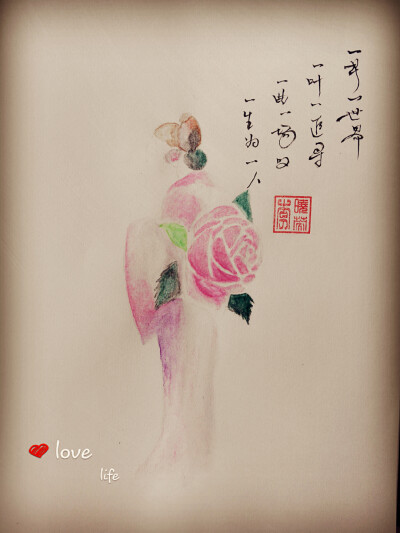 一花一世界
一叶一追寻
一曲一场叹
一生为一人
love
life